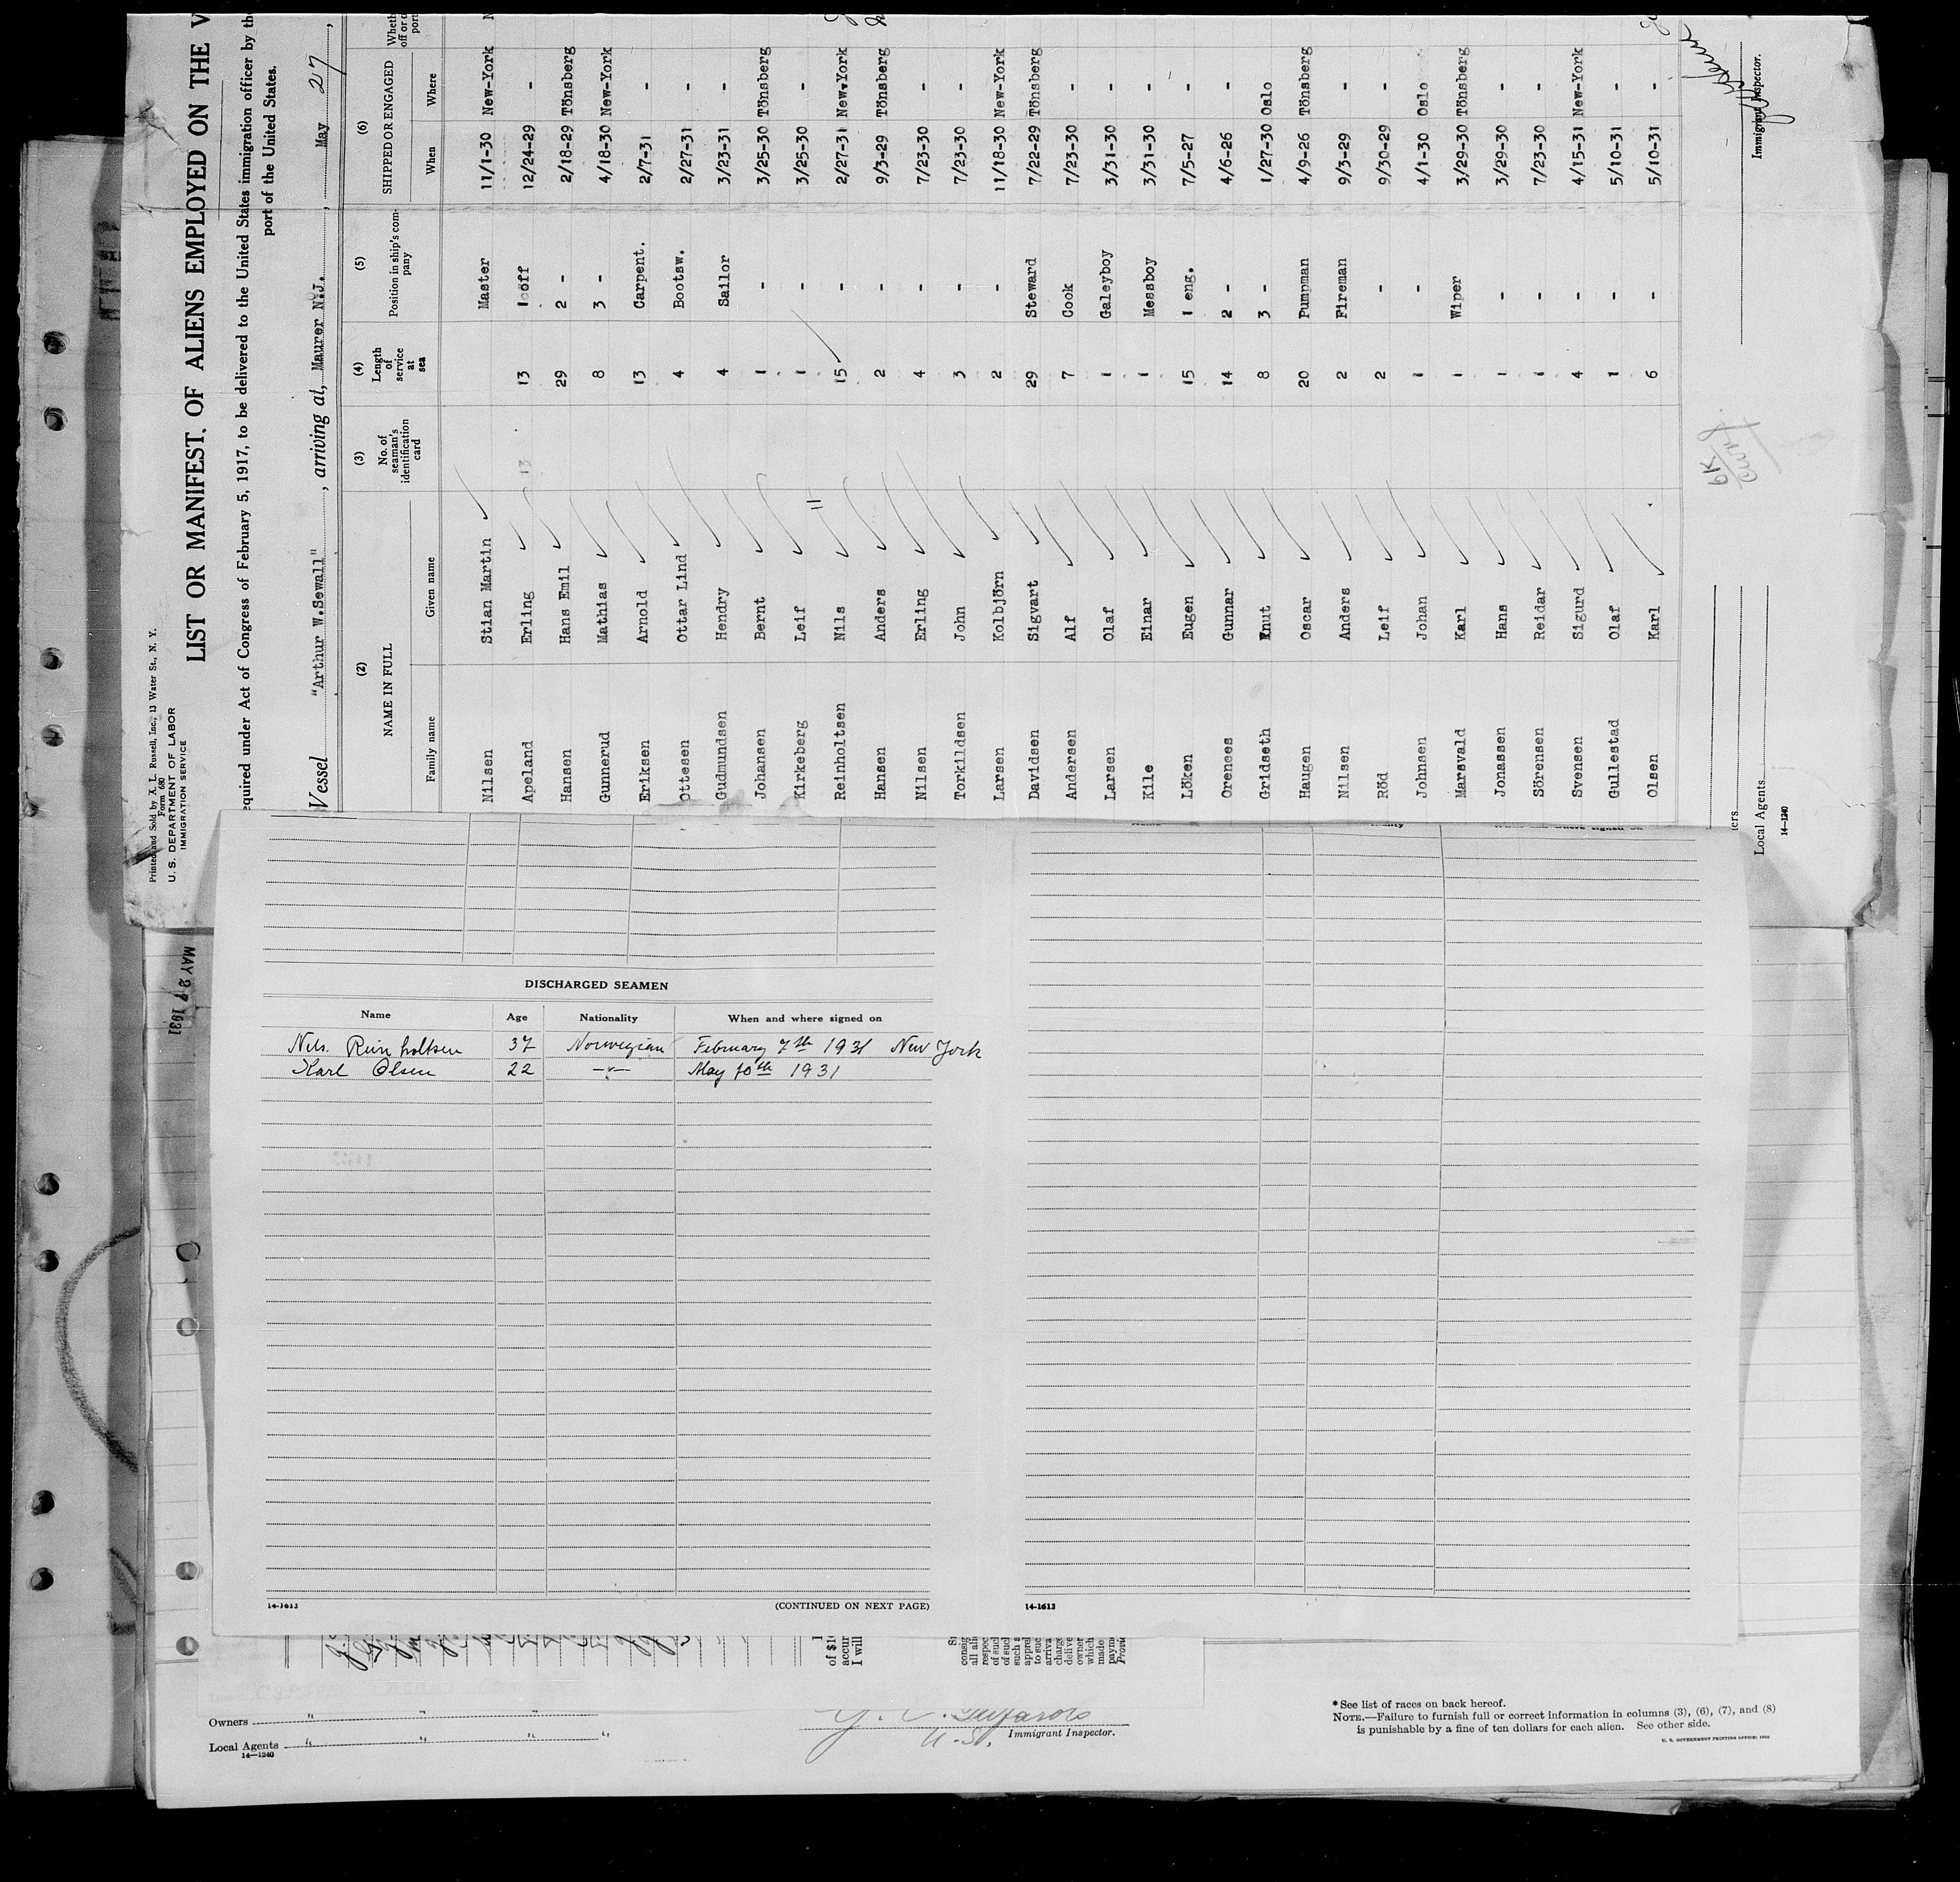 Printed and Sold by A. L. Russell, Inc., 13 Water St., N. Y.
Form 680
U. S. DEPARTMENT OF LABOR
IMMIGRATION SERVICE
LIST OR MANIFEST. OF ALIENS EMPLOYED ON THE V
equired under Act of Congress of February 5, 1917, to be delivered to the United States immigration officer by the
port of the United States.
Vessel "Arthur W.Sewall" , arriving at, Maurer N.J. , May 27 ,
(2) (3) (4) (5) (6)
NAME IN FULL No. of seaman's identification card Length of service at sea Position in ship's company SHIPPED OR ENGAGED
Family name Given name When Where
Nilsen Stian Martin Master 11/1-30 New-York
Apeland Erling 13 13 1 off 12/24-29 -
Hansen Hans Emil 29 2 - 2/18-29 Tönsberg
Gunnerud Mathias 8 3 - 4/18-30 New-York
Eriksen Arnold 13 Carpent. 2/7-31 -
Ottesen Ottar Lind 4 Bootsw. 2/27-31 -
Gudmundsen Hendry 4 Sailor 3/23-31 -
Johansen Bernt 1 - 3/25-30 Tönsberg
Kirkeberg Leif 1 - 3/25-30 -
Reinholtsen Nils 15 - 2/27-31 New-York
Hansen Anders 2 - 9/3-29 Tönsberg
Nilsen Erling 4 - 7/23-30 -
Torkildsen John 3 - 7/23-30 -
Larsen Kolbjörn 2 - 11/18-30 New-York
Davidsen Sigvart 29 Steward 7/22-29 Tönsberg
Andersen Alf 7 Cook 7/23-30 -
Larsen Olaf 1 Galeyboy 3/31-30 -
Kile Einar 1 Messboy 3/31-30 -
Löken Eugen 15 1 eng. 7/5-27 -
Orenees Gunnar 14 2 - 4/6-26 -
Gridseth Knut 8 3 - 1/27-30 Oslo
Haugen Oscar 20 Pumpman 4/9-26 Tönsberg
Nilsen Anders 2 Fireman 9/3-29 -
Röd Leif 2 - 9/30-29 -
Johnsen Johan 1 - 4/1-30 Oslo
Marsvald Karl 1 Wiper 3/29-30 Tönsberg
Jonassen Hans 1 - 3/29-30 -
Sörensen Reidar 1 - 7/23-30 -
Svensen Sigurd 4 - 4/15-31 New-York
Gullestad Olaf 1 - 5/10-31 -
Olsen Karl 6 - 5/10-31 -
Immigrant Inspector.
Local Agents
14-1240
MAY 27 1931
DISCHARGED SEAMEN
Name Age Nationality When and where signed on
Nils. Reinholtsen 37 Norwegian February 7th 1931 New York
Karl Olsen 22 -"- May 10th 1931
14-1613 (CONTINUED ON NEXT PAGE) 14-1613
of $10
accur
I will
consig
all alie
respec
of such
of such
such a
appre
to suc
arriva
charge
delive
owner
which
made
paym
Provi
Owners " "
Local Agents " " " "
14—1240
Immigrant Inspector.
*See list of races on back hereof.
NOTE.—Failure to furnish full or correct information in columns (3), (6), (7), and (8)
is punishable by a fine of ten dollars for each alien. See other side.
U. S. GOVERNMENT PRINTING OFFICE: